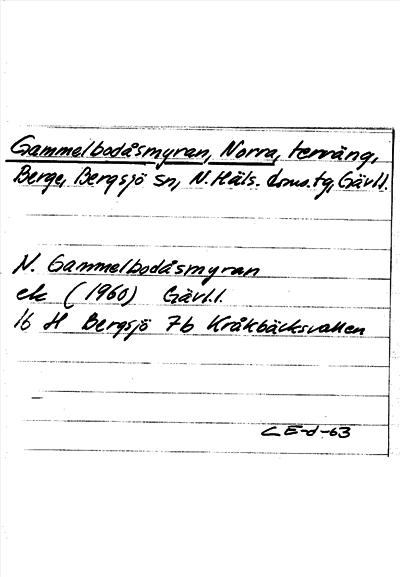 Gammelbodåsmyran, Norra, terräng,
Berge, Bergsjö sn, N. Häls. doms.tg, Gävl.l.
N. Gammelbodåsmyran
ek (1960) Gävl.l.
16 H Bergsjö 7b Kråkbäcksvallen
CE-d-63